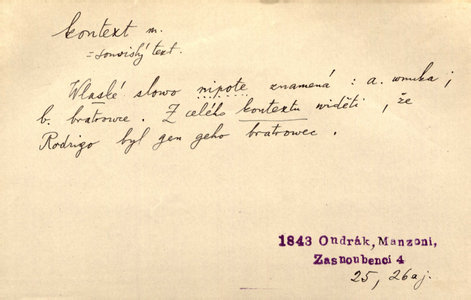 kontext m.
= souvislý text.
Wlaské slowo nipote znamená : a. wnuka ;
b. bratrowce. Z celého kontextu widěti, že
Rodrigo byl gen geho bratrowec.
1843 Ondrák, Manzoni,
Zasnoubenci 4
25, 26aj.